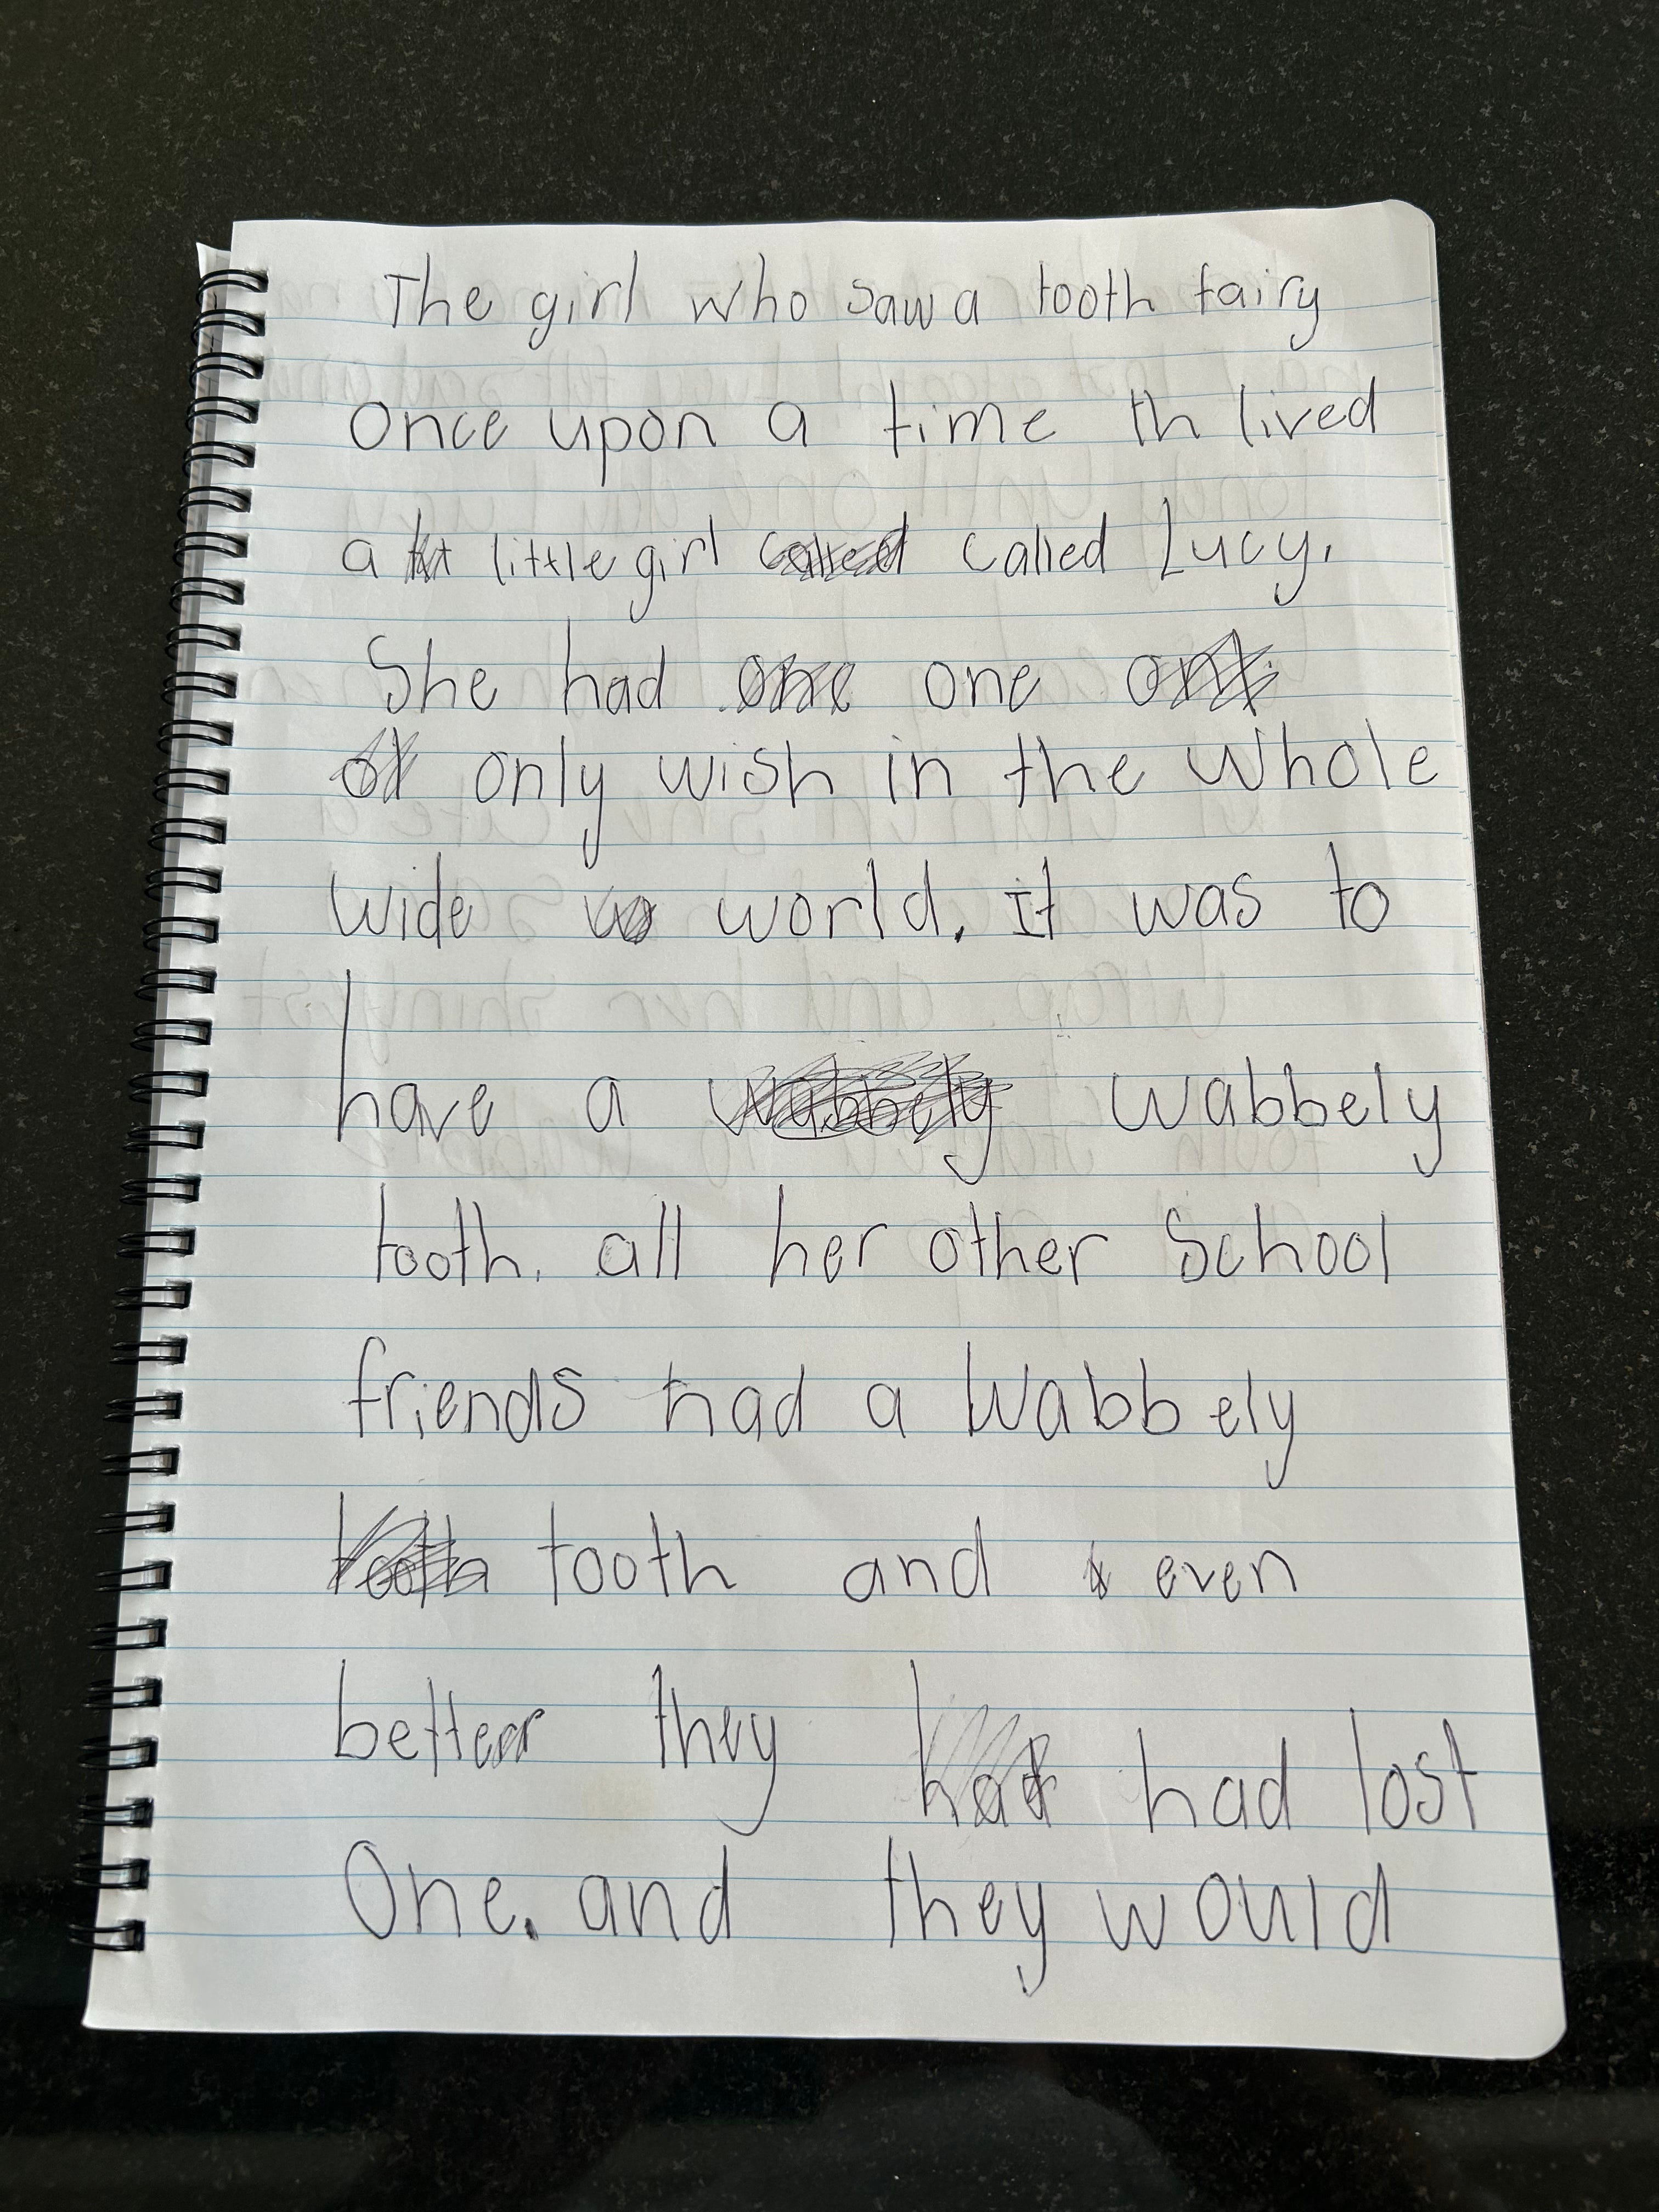 The girl who saw a tooth fairy
once upon a time th lived
a little girl called called Lucy.
She had one one
only wish in the whole
wide world. It was to
have a wabbely wabbely
tooth. all her other School
friends had a wabbely
tooth tooth and even
better they had lost
One. and they would